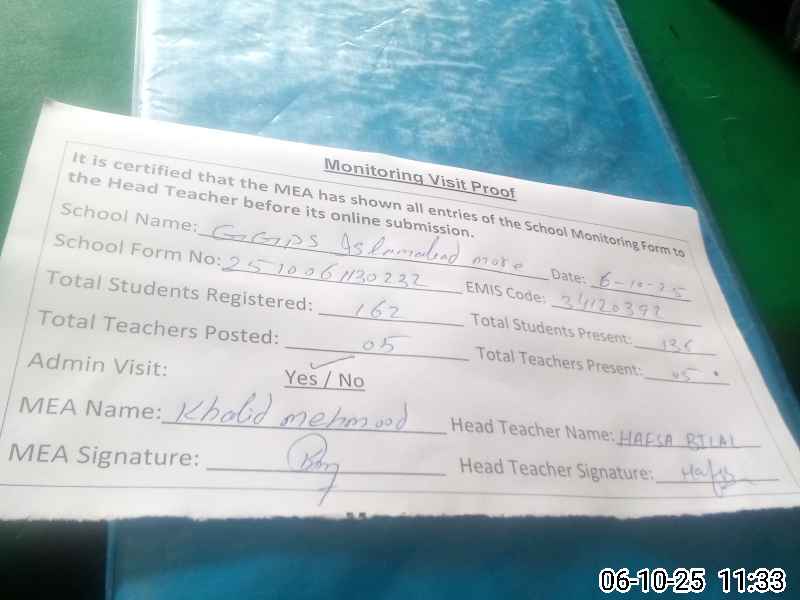 Monitoring Visit Proof
It is certified that the MEA has shown all entries of the School Monitoring Form to
the Head Teacher before its online submission.
School Name: GGPS Islamabad more Date: 6-10-25
School Form No: 2510061130232 EMIS Code: 34120392
Total Students Registered: 162 Total Students Present: 136
Total Teachers Posted: 05 Total Teachers Present: 05
Admin Visit: Yes / No
MEA Name: Khalid mehmood Head Teacher Name: HAFSA BILAL
MEA Signature: Head Teacher Signature: Hafsa
06-10-25 11:33